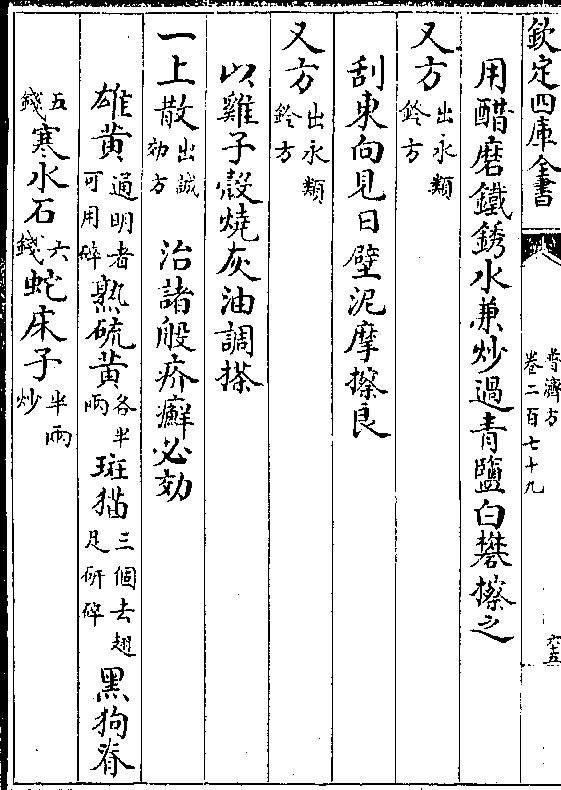 欽定四庫全書
普濟方
卷二百七十九
六十五
用醋磨鐵銹水兼炒過青鹽白礬擦之
又方出永類鈐方
刮東向見日壁泥摩擦良
又方出永類鈐方
以雞子殼燒灰油調搽
一上散出誠効方 治諸般疥癬必効
雄黄通明者可用碎熟硫黄各半兩斑猫三個去翅足研碎黑狗脊
五錢寒水石六錢蛇床子半兩炒